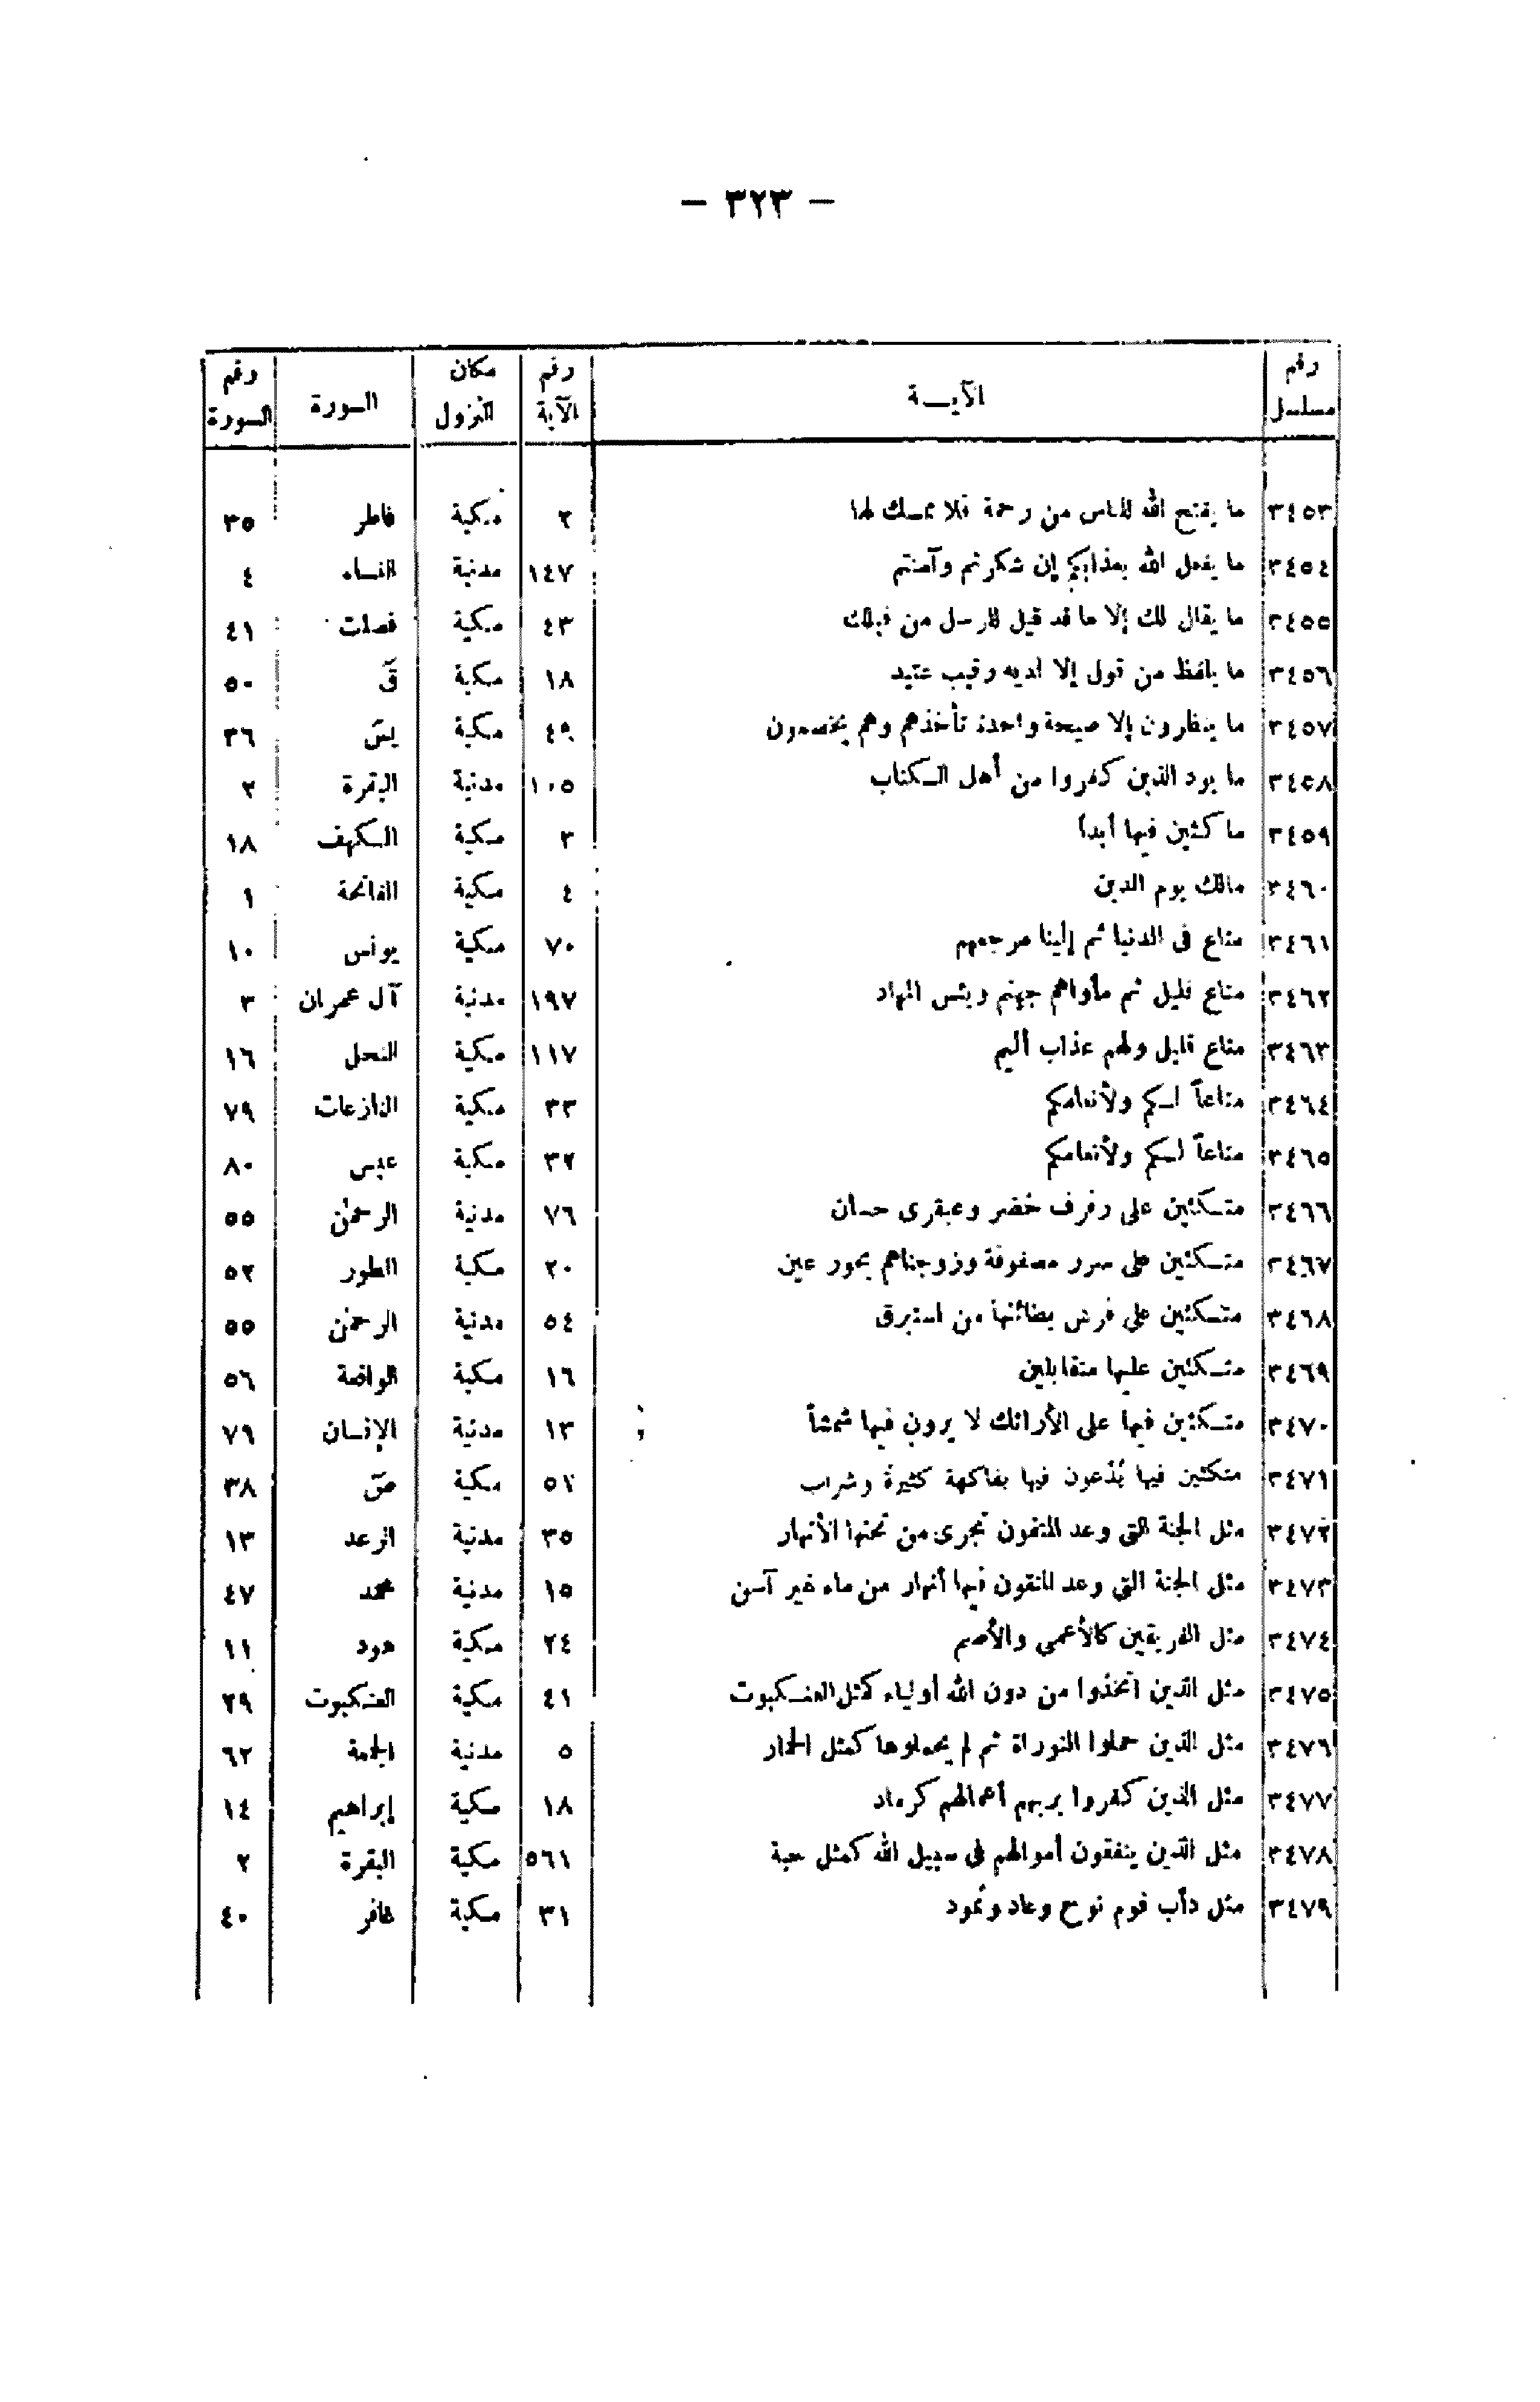 – ٣٢٣ –
رقم مسلسل | الآيـــة | رقم الآية | مكان النزول | السورة | رقم السورة
٣٤٥٣ | ما يفتح الله للناس من رحمة فلا ممسك لها | ٢ | مكية | فاطر | ٣٥
٣٤٥٤ | ما يفعل الله بعذابكم إن شكرتم وآمنتم | ١٤٧ | مدنية | النساء | ٤
٣٤٥٥ | ما يقال لك إلا ما قد قيل للرسل من قبلك | ٤٣ | مكية | فصلت | ٤١
٣٤٥٦ | ما يلفظ من قول إلا لديه رقيب عتيد | ١٨ | مكية | قۤ | ٥٠
٣٤٥٧ | ما ينظرون إلا صيحة واحدة تأخذهم وهم يخصمون | ٤٩ | مكية | يسۤ | ٣٦
٣٤٥٨ | ما يود الذين كفروا من أهل الكتاب | ١٠٥ | مدنية | البقرة | ٢
٣٤٥٩ | ماكثين فيها أبدا | ٣ | مكية | الكهف | ١٨
٣٤٦٠ | مالك يوم الدين | ٤ | مكية | الفاتحة | ١
٣٤٦١ | متاع فى الدنيا ثم إلينا مرجعهم | ٧٠ | مكية | يونس | ١٠
٣٤٦٢ | متاع قليل ثم مأواهم جهنم وبئس المهاد | ١٩٧ | مدنية | آل عمران | ٣
٣٤٦٣ | متاع قليل ولهم عذاب أليم | ١١٧ | مكية | النحل | ١٦
٣٤٦٤ | متاعاً لكم ولأنعامكم | ٣٣ | مكية | النازعات | ٧٩
٣٤٦٥ | متاعاً لكم ولأنعامكم | ٣٢ | مكية | عبس | ٨٠
٣٤٦٦ | متكئين على رفرف خضر وعبقرى حسان | ٧٦ | مدنية | الرحمٰن | ٥٥
٣٤٦٧ | متكئين على سرر مصفوفة وزوجناهم بحور عين | ٢٠ | مكية | الطور | ٥٢
٣٤٦٨ | متكئين على فرش بطائنها من استبرق | ٥٤ | مدنية | الرحمٰن | ٥٥
٣٤٦٩ | متكئين عليها متقابلين | ١٦ | مكية | الواقعة | ٥٦
٣٤٧٠ | متكئين فيها على الأرائك لا يرون فيها شمساً | ١٣ | مدنية | الإنسان | ٧٩
٣٤٧١ | متكئين فيها يَدْعون فيها بفاكهة كثيرة وشراب | ٥١ | مكية | صۤ | ٣٨
٣٤٧٢ | مثل الجنة التى وعد المتقون تجرى من تحتها الأنهار | ٣٥ | مدنية | الرعد | ١٣
٣٤٧٣ | مثل الجنة التى وعد المتقون فيها أنهار من ماء غير آسن | ١٥ | مدنية | محمد | ٤٧
٣٤٧٤ | مثل الفريقين كالأعمى والأصم | ٢٤ | مكية | هود | ١١
٣٤٧٥ | مثل الذين اتخذوا من دون الله أولياء كمثل العنكبوت | ٤١ | مكية | العنكبوت | ٢٩
٣٤٧٦ | مثل الذين حملوا التوراة ثم لم يحملوها كمثل الحمار | ٥ | مدنية | الجمعة | ٦٢
٣٤٧٧ | مثل الذين كفروا بربهم أعمالهم كرماد | ١٨ | مكية | إبراهيم | ١٤
٣٤٧٨ | مثل الذين ينفقون أموالهم فى سبيل الله كمثل حبة | ٥٦١ | مكية | البقرة | ٢
٣٤٧٩ | مثل دأب قوم نوح وعاد وثمود | ٣١ | مكية | غافر | ٤٠